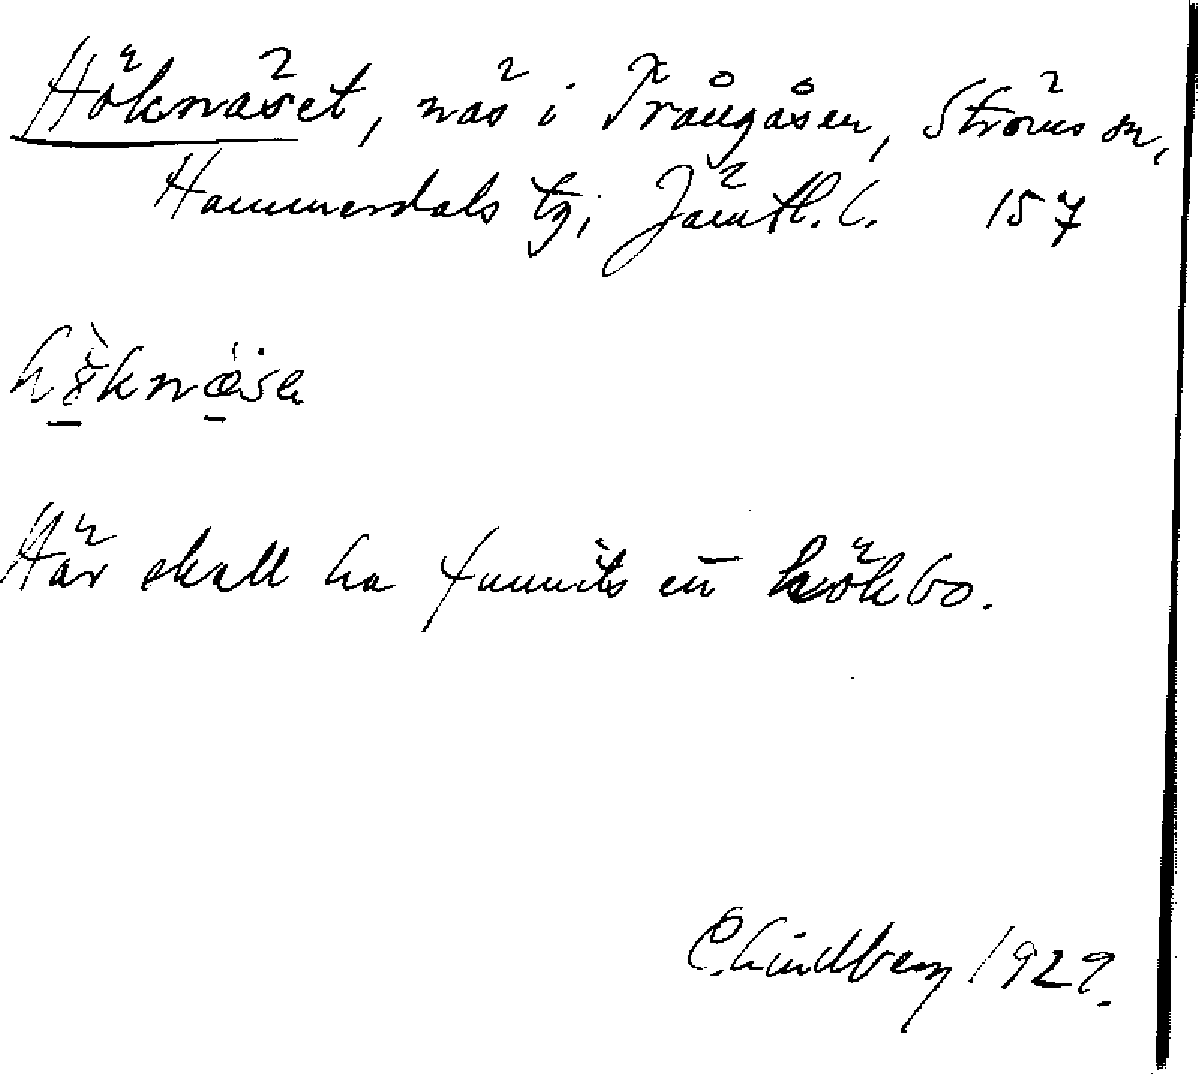 Höknäset, näs i Trångåsen, Ströms sn,
Hammerdals tg; Jämtl. l. 157
Här skall ha funnits en hökbo.
C. Lindberg 1929.